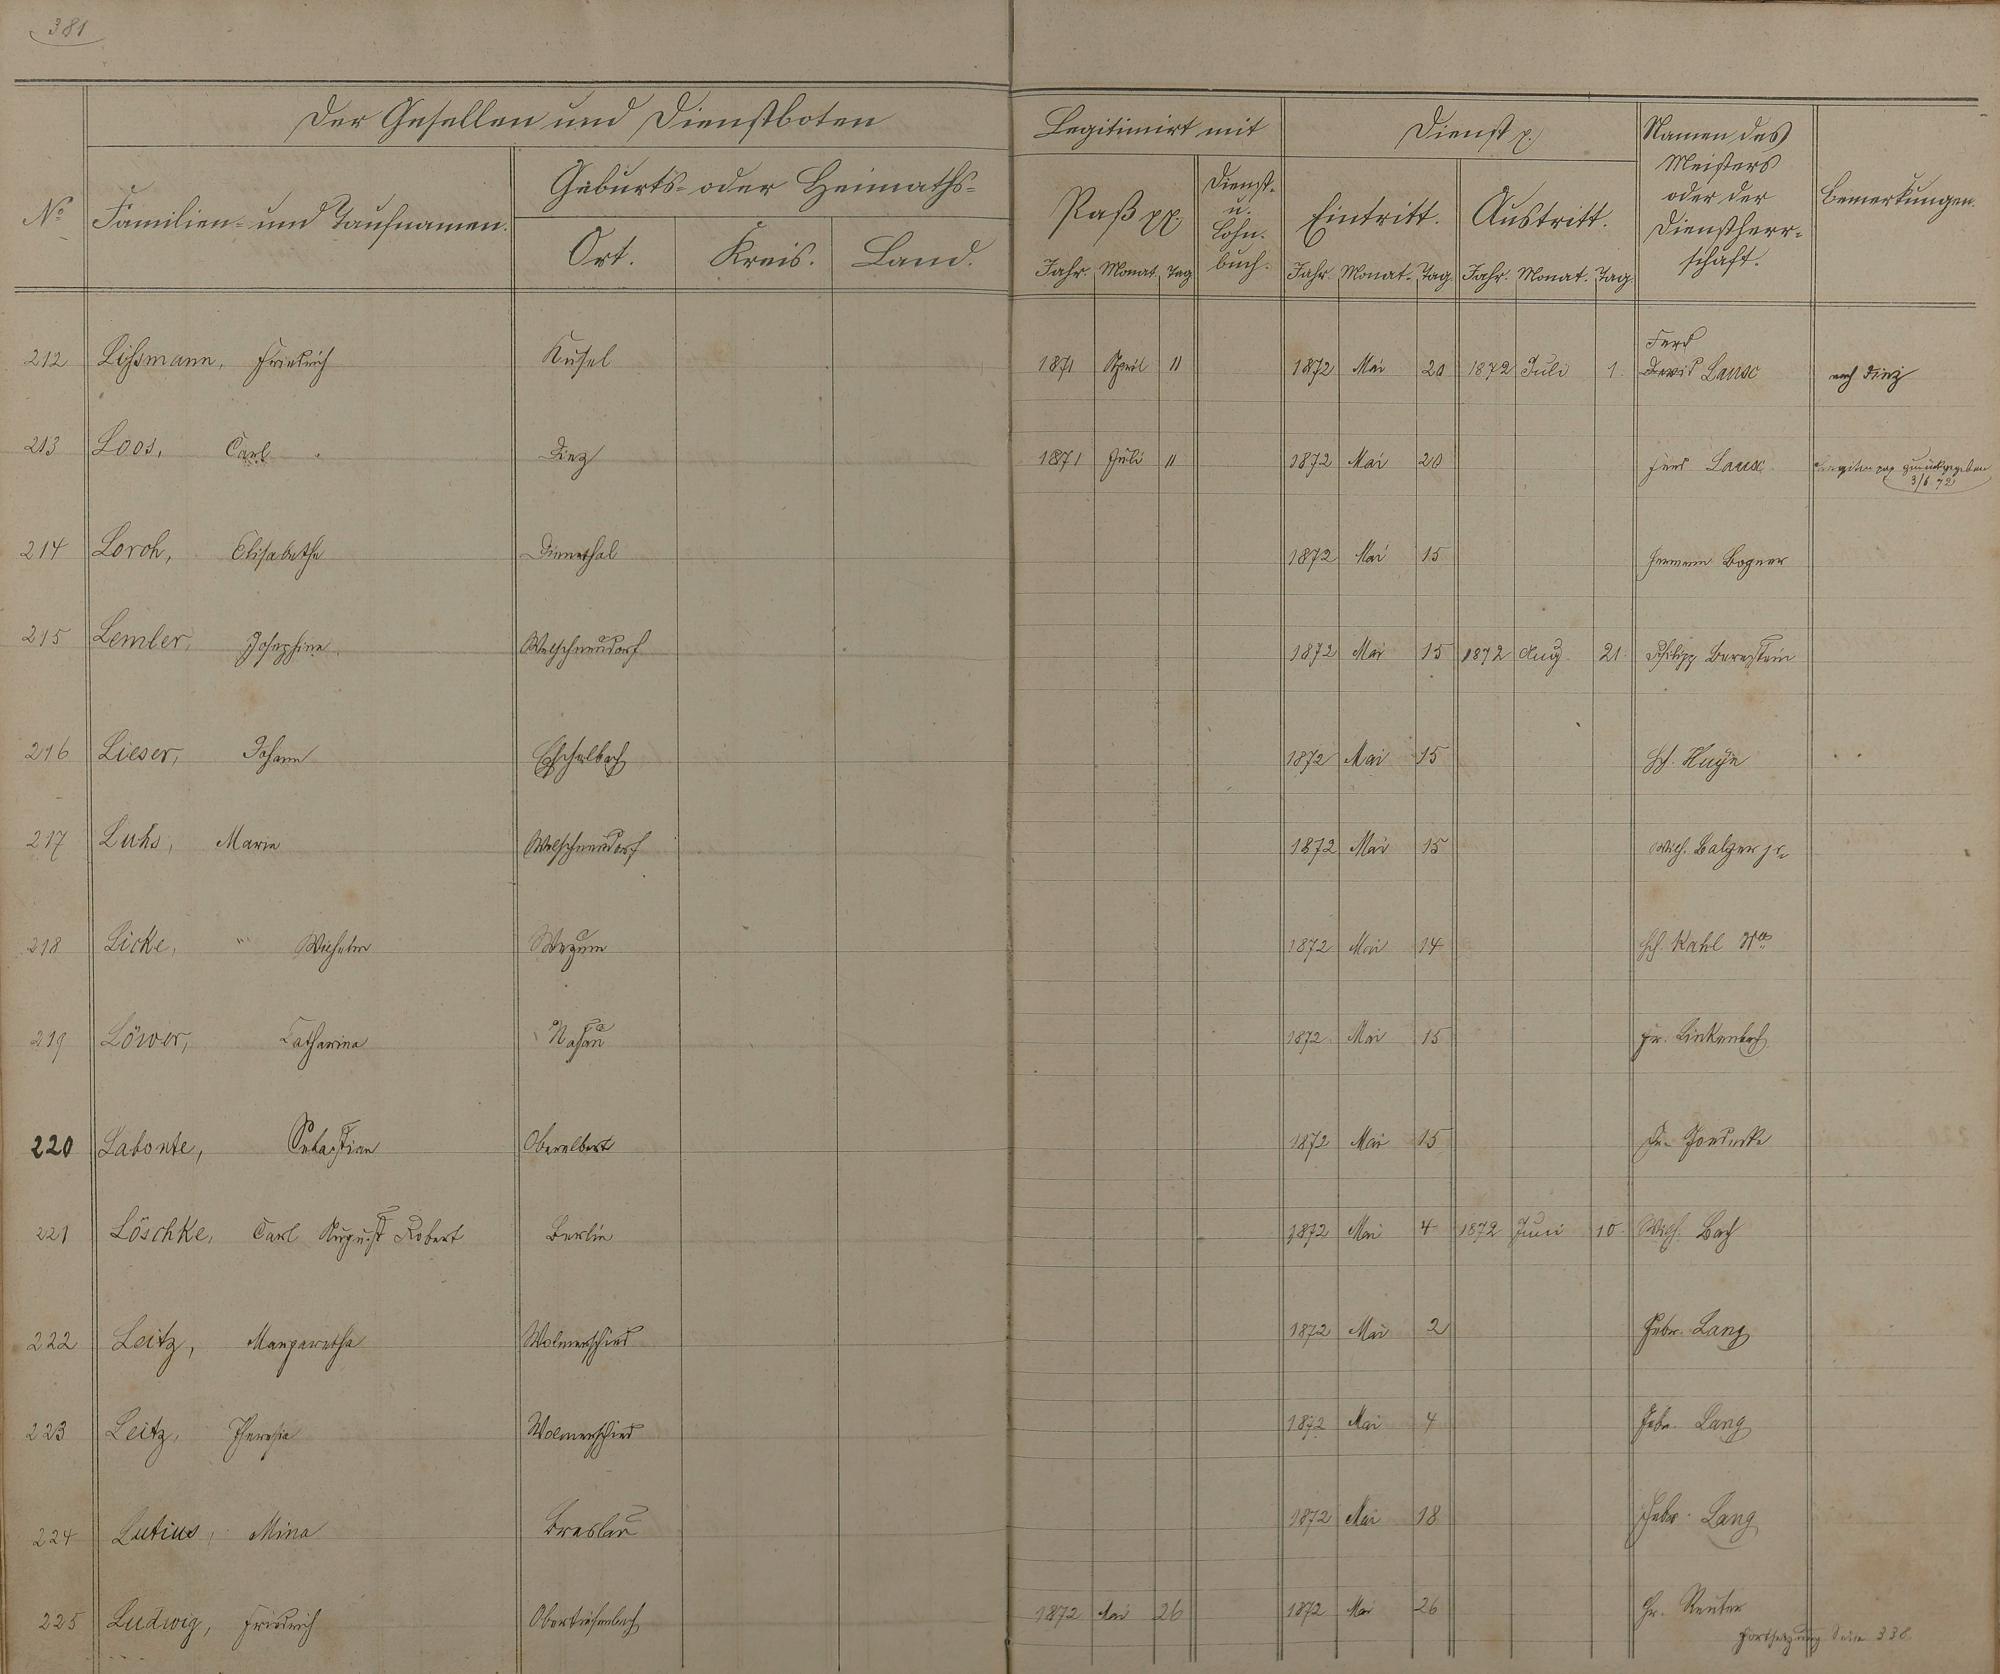 381
Der Gesellen und Dienstboten
Legitimirt mit
Dienst p.
Namen des Meisters oder der Dienstherr-schaft.
Bemerkungen.
No Familien- und Taufnamen.
Geburts- oder Heimaths-
Ort. Kreis. Land.
Paß pp.
Dienst- u. Lohn-buch.
Eintritt. Austritt.
Jahr. Monat. Tag Jahr. Monat. Tag. Jahr. Monat. Tag.
212 Lißmann, Friedrich Kusel 1871 April 11 1872 Mai 20 1872 Juli 1. Ferd David Laux nach Diez
213 Loos, Carl Diez 1871 Juli 11 1872 Mai 20 Ferd Laux zurückgegeben 3/6 72
214 Loroh, Elisabethe Dienethal 1872 Mai 15 Hermann Bogner
215 Lemler, Josephine Welschneudorf 1872 Mai 15 1872 Aug. 21 Philipp Bernstein
216 Lieser, Johann Eschelbach 1872 Mai 15
217 Luhs, Marie Welschneudorf 1872 Mai 15 Wilh. Balzer jr
218 Licke, Wilhelm 1872 Mai 14 Kahl
219 Löwer, Catharina Naßau 1872 Mai 15 Fr. Linkenbach
220 Labonte, Sebastian Oberelbert 1872 Mai 15
221 Löschke, Carl August Robert Berlin 1872 Mai 4 1872 Juni 10 Wilh. Bach
222 Leitz, Margaretha Wolmerschied 1872 Mai 2 Gebr. Lang
223 Leitz, Theresia Wolmerschied 1872 Mai 4 Gebr. Lang
224 Lutius, Mina Breslau 1872 Mai 18 Gebr. Lang
225 Ludwig, Friedrich Obertiefenbach 1872 Mai 26 1872 Mai 26 Reuter
Fortsetzung Seite 338